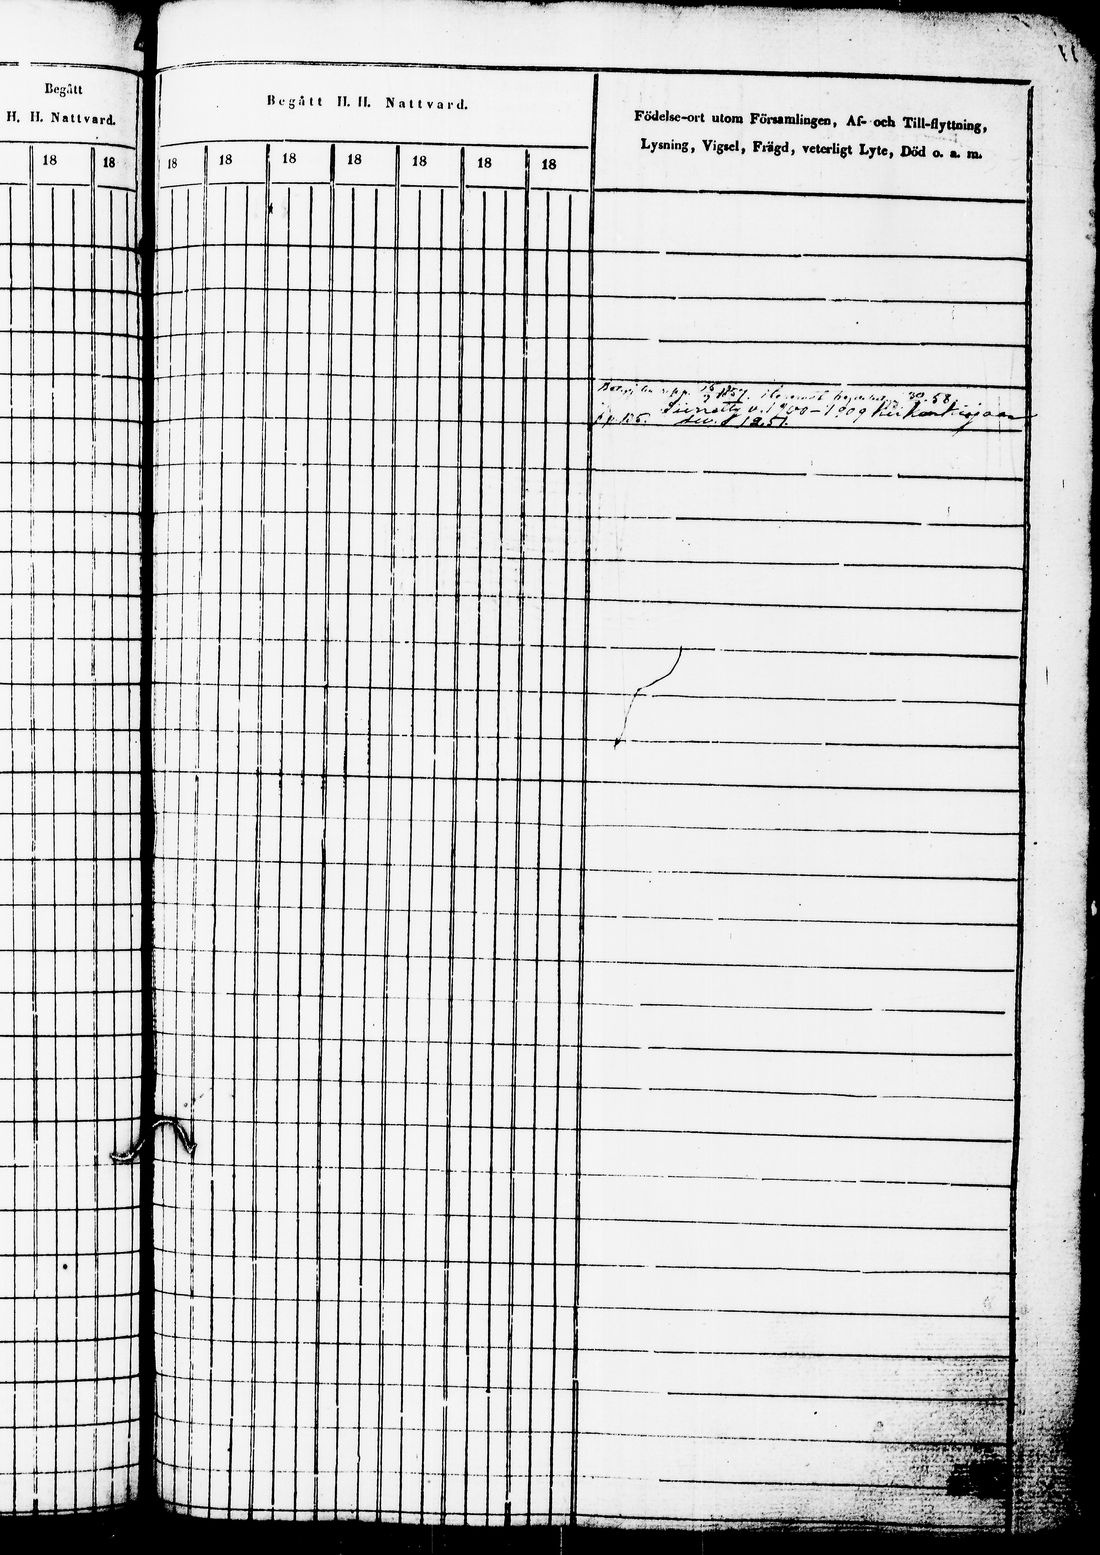 Begått
H. H. Nattvard.
18 18
Begått H. H. Nattvard.
18 18 18 18 18 18 18
Födelse-ort utom Församlingen, Af- och Till-flyttning,
Lysning, Vigsel, Frägd, veterligt Lyte, Död o. a. m.
1857. 58.
Siirretty v. 1900-1909